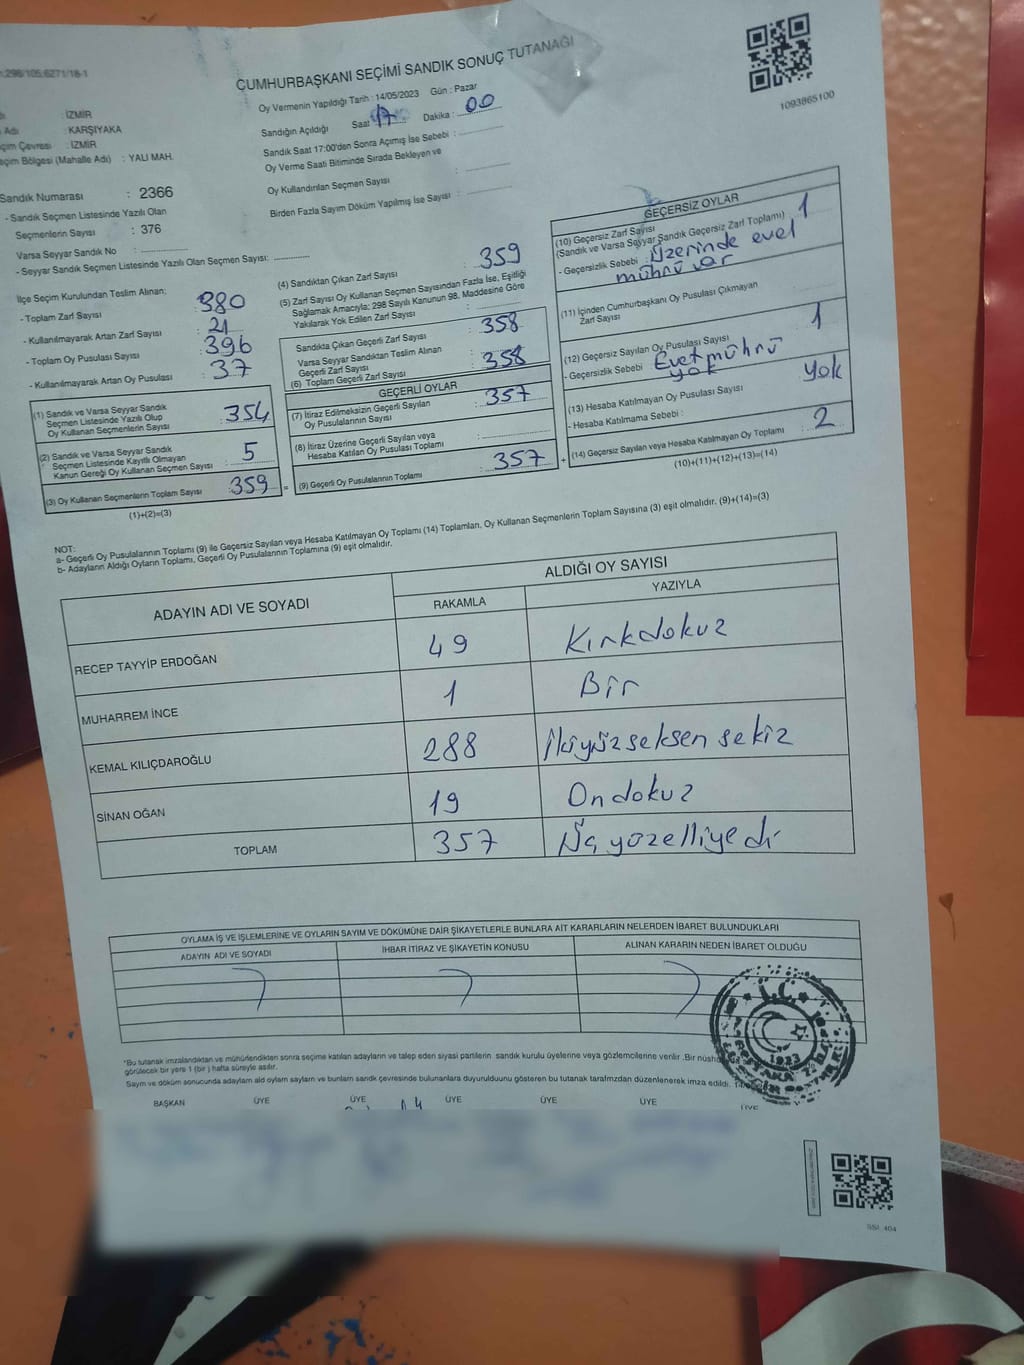 :298/105:6271/18-1
CUMHURBAŞKANI SEÇİMİ SANDIK SONUÇ TUTANAĞI
1093865100
Oy Vermenin Yapıldığı Tarih : 14/05/2023 Gün : Pazar
Sandığın Açıldığı Saat : 17 Dakika : 00
Sandık Saat 17:00'den Sonra Açımış İse Sebebi :
Oy Verme Saati Bitiminde Sırada Bekleyen ve
Oy Kullandırılan Seçmen Sayısı :
Birden Fazla Sayım Döküm Yapılmış İse Sayısı :
: İZMİR
Adı : KARŞIYAKA
çim Çevresi : İZMİR
eçim Bölgesi (Mahalle Adı) : YALI MAH.
Sandık Numarası : 2366
- Sandık Seçmen Listesinde Yazılı Olan
Seçmenlerin Sayısı : 376
Varsa Seyyar Sandık No :
- Seyyar Sandık Seçmen Listesinde Yazılı Olan Seçmen Sayısı:
İlçe Seçim Kurulundan Teslim Alınan:
- Toplam Zarf Sayısı : 380
- Kullanılmayarak Artan Zarf Sayısı : 21
- Toplam Oy Pusulası Sayısı : 396
- Kullanılmayarak Artan Oy Pusulası : 37
(1) Sandık ve Varsa Seyyar Sandık
Seçmen Listesinde Yazılı Olup
Oy Kullanan Seçmenlerin Sayısı : 354
(2) Sandık ve Varsa Seyyar Sandık
Seçmen Listesinde Kayıtlı Olmayan
Kanun Gereği Oy Kullanan Seçmen Sayısı : 5
(3) Oy Kullanan Seçmenlerin Toplam Sayısı : 359
(1)+(2)=(3)
(4) Sandıktan Çıkan Zarf Sayısı : 359
(5) Zarf Sayısı Oy Kullanan Seçmen Sayısından Fazla İse, Eşitliği
Sağlamak Amacıyla; 298 Sayılı Kanunun 98. Maddesine Göre
Yakılarak Yok Edilen Zarf Sayısı :
Sandıkta Çıkan Geçerli Zarf Sayısı : 358
Varsa Seyyar Sandıktan Teslim Alınan
Geçerli Zarf Sayısı :
(6) Toplam Geçerli Zarf Sayısı : 358
GEÇERLİ OYLAR
(7) İtiraz Edilmeksizin Geçerli Sayılan
Oy Pusulalarının Sayısı : 357
(8) İtiraz Üzerine Geçerli Sayılan veya
Hesaba Katılan Oy Pusulası Toplamı :
(9) Geçerli Oy Pusulalarının Toplamı : 357
GEÇERSİZ OYLAR
(10) Geçersiz Zarf Sayısı
(Sandık ve Varsa Seyyar Sandık Geçersiz Zarf Toplamı) : 1
- Geçersizlik Sebebi : Üzerinde evet
mührü var
(11) İçinden Cumhurbaşkanı Oy Pusulası Çıkmayan
Zarf Sayısı :
(12) Geçersiz Sayılan Oy Pusulası Sayısı : 1
- Geçersizlik Sebebi : Evet mührü
yok
(13) Hesaba Katılmayan Oy Pusulası Sayısı : yok
- Hesaba Katılmama Sebebi :
(14) Geçersiz Sayılan veya Hesaba Katılmayan Oy Toplamı : 2
(10)+(11)+(12)+(13)=(14)
NOT:
a- Geçerli Oy Pusulalarının Toplamı (9) ile Geçersiz Sayılan veya Hesaba Katılmayan Oy Toplamı (14) Toplamları, Oy Kullanan Seçmenlerin Toplam Sayısına (3) eşit olmalıdır. (9)+(14)=(3)
b- Adayların Aldığı Oyların Toplamı, Geçerli Oy Pusulalarının Toplamına (9) eşit olmalıdır.
ADAYIN ADI VE SOYADI ALDIĞI OY SAYISI
RAKAMLA YAZIYLA
RECEP TAYYİP ERDOĞAN 49 Kırkdokuz
MUHARREM İNCE 1 Bir
KEMAL KILIÇDAROĞLU 288 İkiyüzseksensekiz
SİNAN OĞAN 19 Ondokuz
TOPLAM 357 Üçyüzelliyedi
OYLAMA İŞ VE İŞLEMLERİNE VE OYLARIN SAYIM VE DÖKÜMÜNE DAİR ŞİKAYETLERLE BUNLARA AİT KARARLARIN NELERDEN İBARET BULUNDUKLARI
ADAYIN ADI VE SOYADI İHBAR İTİRAZ VE ŞİKAYETİN KONUSU ALINAN KARARIN NEDEN İBARET OLDUĞU
T.C.
1923
*Bu tutanak imzalandıktan ve mühürlendikten sonra seçime katılan adayların ve talep eden siyasi partilerin sandık kurulu üyelerine veya gözlemcilerine verilir .Bir nüsha
görülecek bir yere 1 (bir ) hafta süreyle asılır.
Sayım ve döküm sonucunda adayların aldı oyların sayların ve bunların sandık çevresinde bulunanlara duyurulduunu gösteren bu tutanak tarafmzdan düzenlenerek imza edildi.
BAŞKAN ÜYE ÜYE ÜYE ÜYE ÜYE ÜYE
SSI: 404